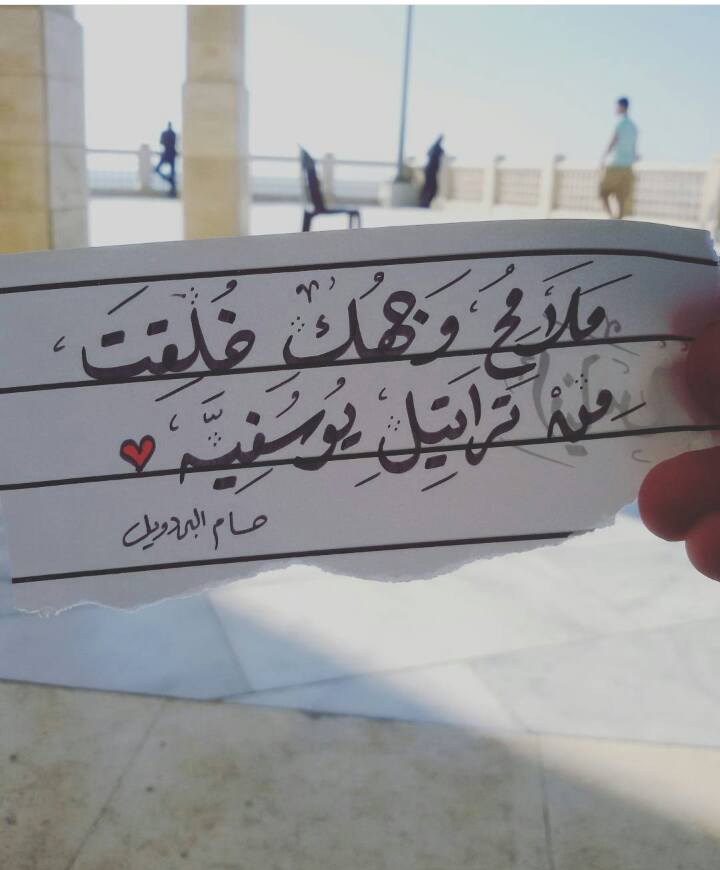 مَلَامِحُ وَجْهُكَ خُلِقَتَ
مِنْ تَرَاتِيِلِ يُوسُفِيَّه
حسام البردويل